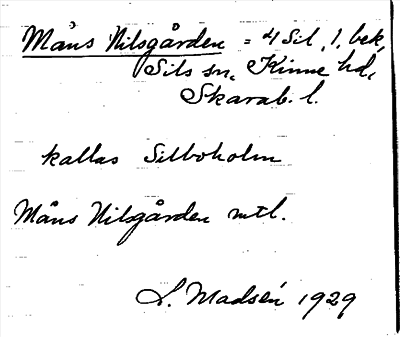 Måns Nilsgården = 4 Sil, 1. bek,
Sils sn, Kinne hd,
Skarab. l.
kallas Silboholm
Måns Nilsgården mtl.
L. Madsén 1929